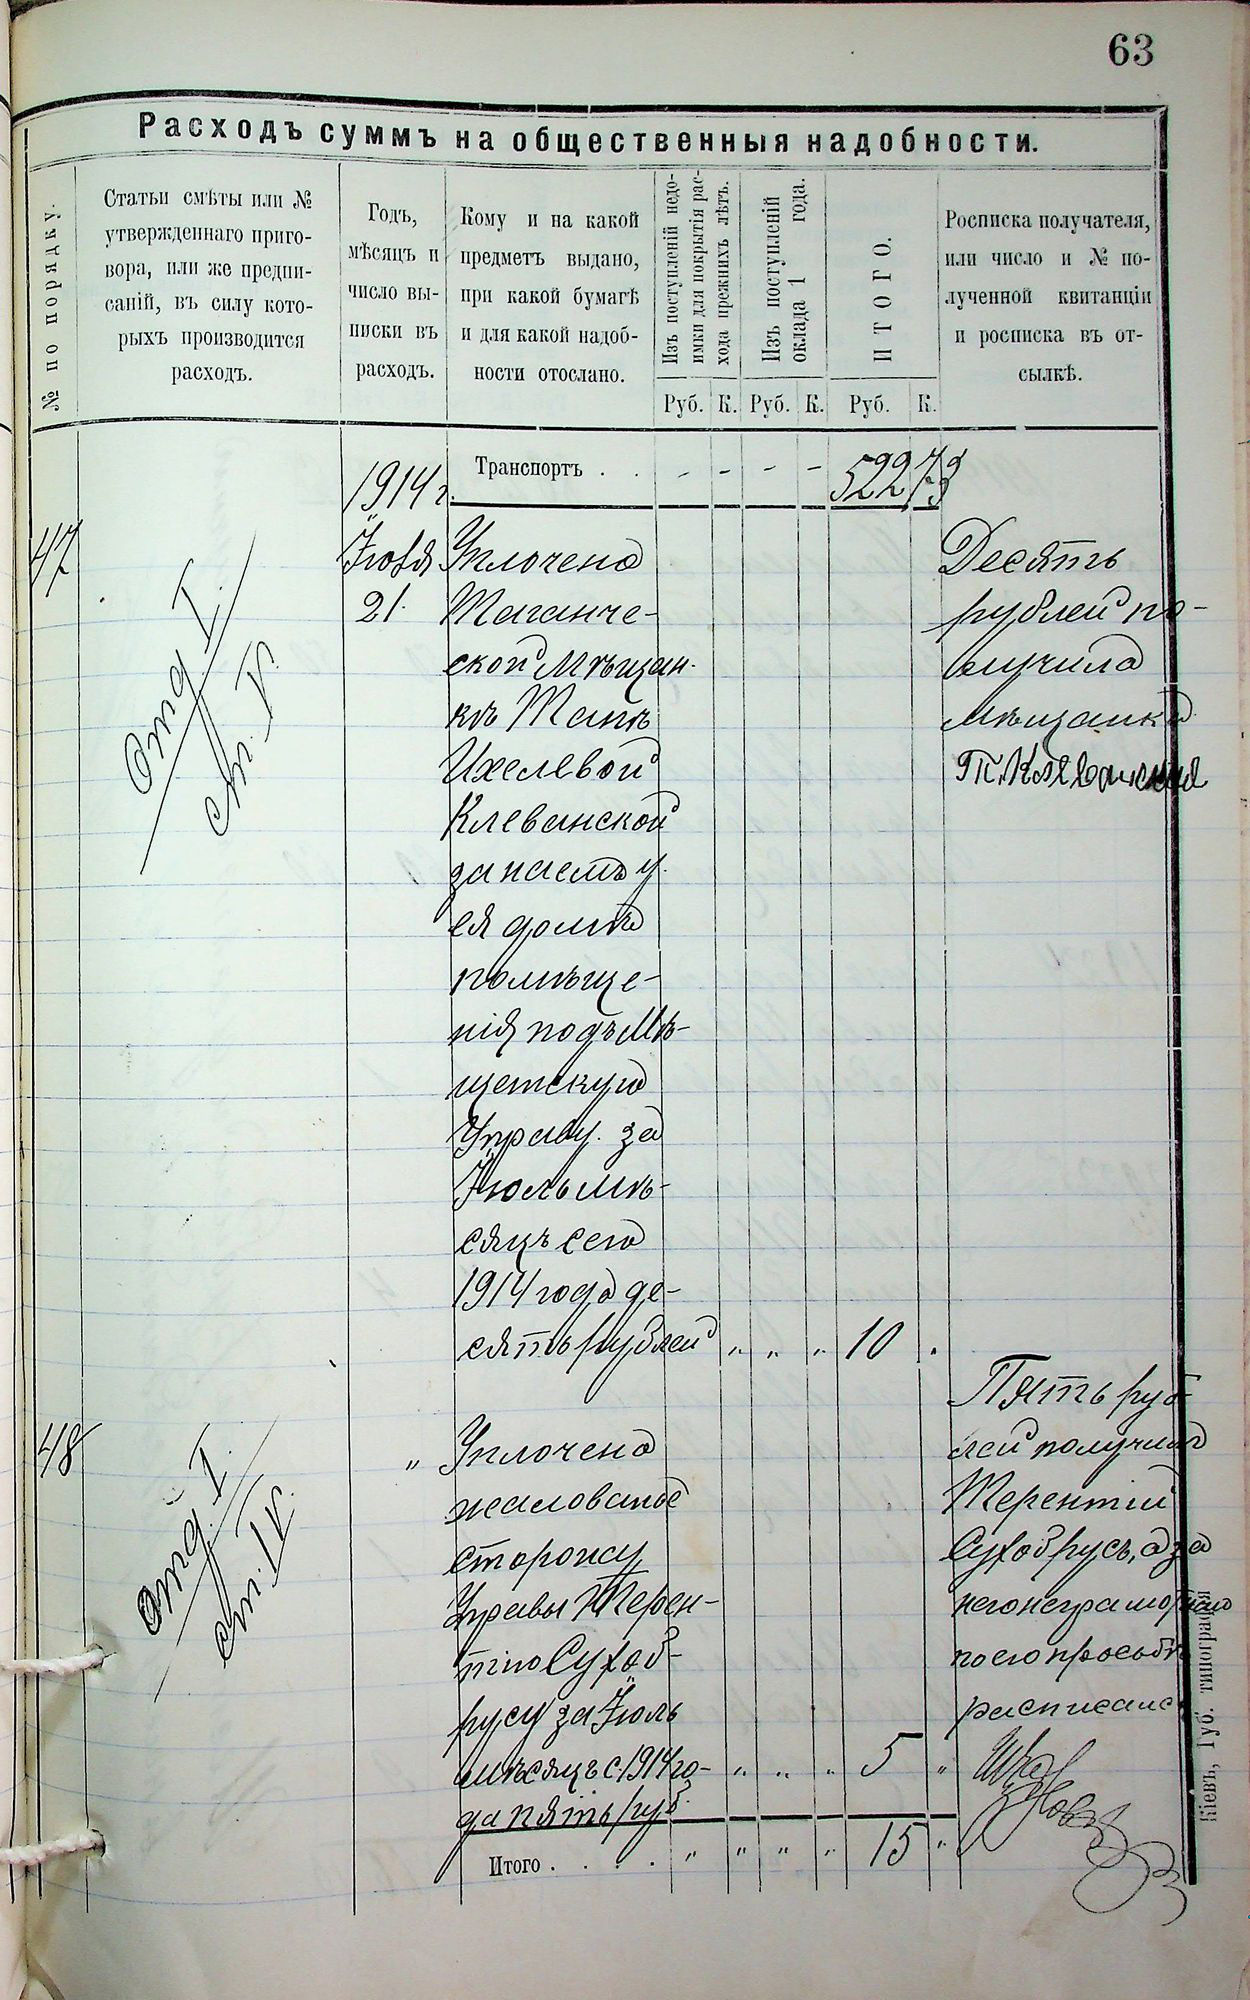 63
Расходъ суммъ на общественныя надобности.
№ по порядку.
Статьи смѣты или №
утвержденнаго приго-
вора, или же предпи-
саній, въ силу кото-
рыхъ производится
расходъ.
Годъ,
мѣсяцъ и
число вы-
писки въ
расходъ.
Кому и на какой
предметъ выдано,
при какой бумагѣ
и для какой надоб-
ности отослано.
Изъ поступленій недо-
имки для покрытія рас-
хода прежнихъ лѣтъ.
Изъ поступленій
оклада 1 года.
ИТОГО.
Росписка получателя,
или число и № по-
лученной квитанціи
и росписка въ от-
сылкѣ.
Руб. К. Руб. К. Руб. К.
Транспортъ . . - - - - 522 73
1914 г.
47
Отд. I.
ст. IV.
Іюля
21.
Уплочено
Таганче-
ской Мѣщан-
кѣ Тапѣ
Ихелевой
Клеванской
за наемъ у
ея дома
помѣще-
нія подъ Мѣ-
щанскую
Управу за
Іюль мѣ-
сяцъ сего
1914 года де-
сять рублей " " " 10 .
Десять
рублей по-
лучила
мѣщанка
Т. Клеванская
48
Отд. I.
ст. IV.
"
Уплочено
жалованье
сторожу
Управы Терен-
тію Сухоб-
русу за Іюль
мѣсяцъ с. 1914 го-
да пять руб. " " " 5 "
Пять руб-
лей получилъ
Терентій
Сухобрусъ, а за
него неграмотнаго
по его просьбѣ
расписался
Итого . . . . " " " " 15 "
Кіевъ, Губ. типографія